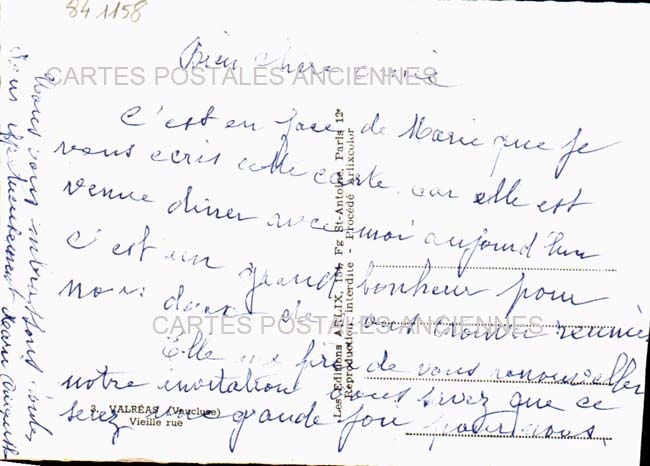 84 1158
Bien chère amie
CARTES POSTALES ANCIENNES
C'est en face de Marie que je
vous ecris cette carte. car elle est
venue diner avec moi aujourd'hui
C'est un grand bonheur pour
nous de
CARTES POSTALES ANCIENNES
Elle me prie de vous renouveller
notre invitation vous savez que ce
serez une grande joie pour nous.
3. VALRÉAS (Vaucluse)
Vieille rue
Les Editions ARLIX, Fg St-Antoine, Paris 12e
Reproduction interdite - Procédé Arlixcolor
Nous vous embrassons
tous affectueusement